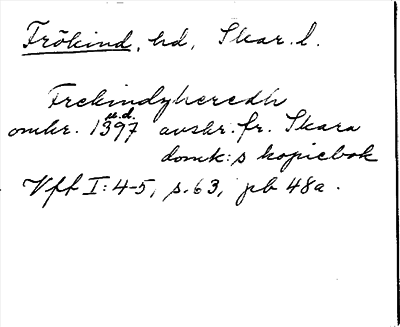 Frökind, hd, Skar. l.
Frekindyheredh
u.d.
omkr. 1397 avskr. fr. Skara
domk:s kopiebok
Vff I: 4-5, s. 63, pb 48a.